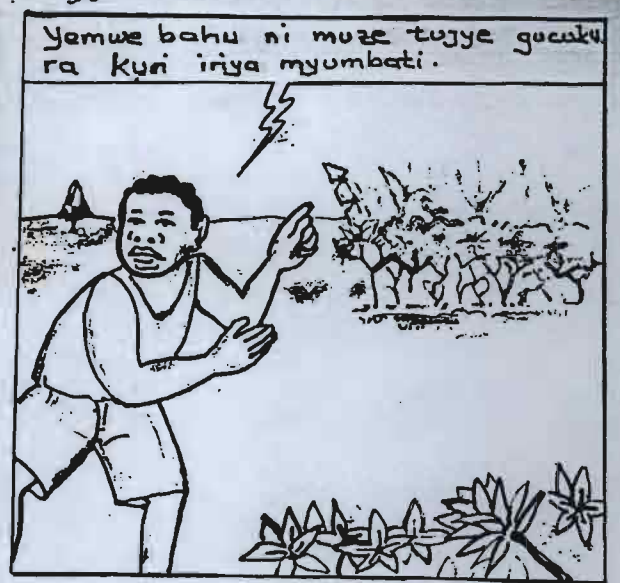 Yemwe bahu ni muze tujye gucuku
ra kuri iriya myumbati.